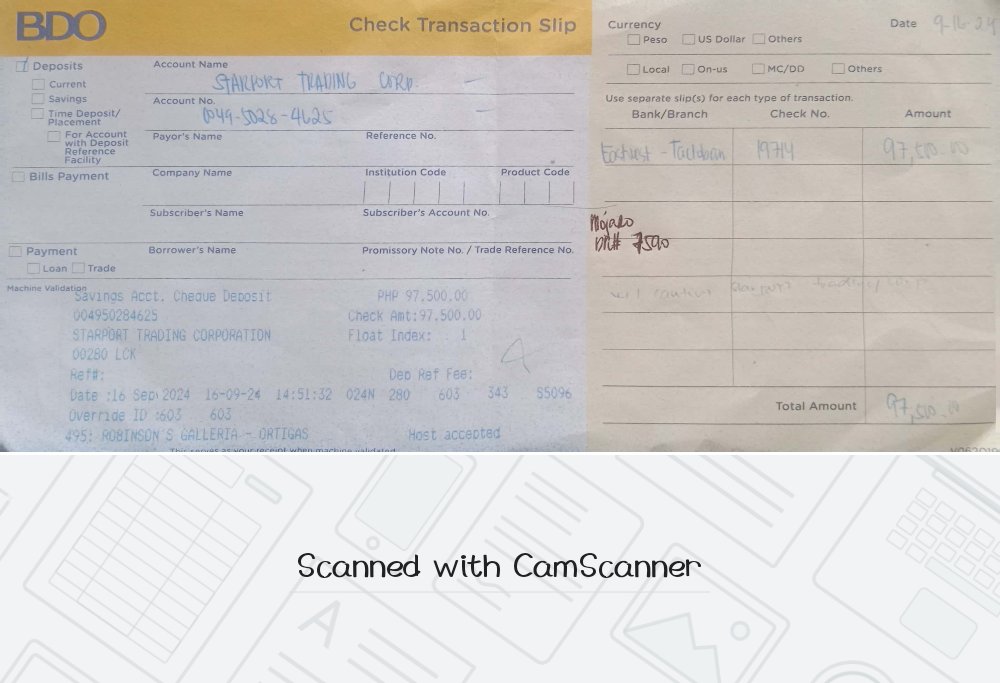 BDO
Check Transaction Slip
Deposits
Current
Savings
Time Deposit/
Placement
For Account
with Deposit
Reference
Facility
Bills Payment
Payment
Loan Trade
Account Name
STARPORT TRADING CORP.
Account No.
0049-5028-4625
Payor's Name Reference No.
Company Name Institution Code Product Code
Subscriber's Name Subscriber's Account No.
Borrower's Name Promissory Note No. / Trade Reference No.
Machine Validation
Savings Acct. Cheque Deposit PHP 97,500.00
004950284625 Check Amt:97,500.00
STARPORT TRADING CORPORATION Float Index: 1
00280 LCK
Ref#: Dep Ref Fee:
Date :16 Sep 2024 16-09-24 14:51:32 024N 280 603 343 S5096
Override ID :603 603
495: ROBINSON'S GALLERIA - ORTIGAS Host accepted
This serves as your receipt when machine validated.
Currency Date 9-16-24
Peso US Dollar Others
Local On-us MC/DD Others
Use separate slip(s) for each type of transaction.
Bank/Branch Check No. Amount
Eastwest - Tacloban 19714 97,500.00
DR# 7590
starport trading corp
Total Amount 97,500.00
Scanned with CamScanner